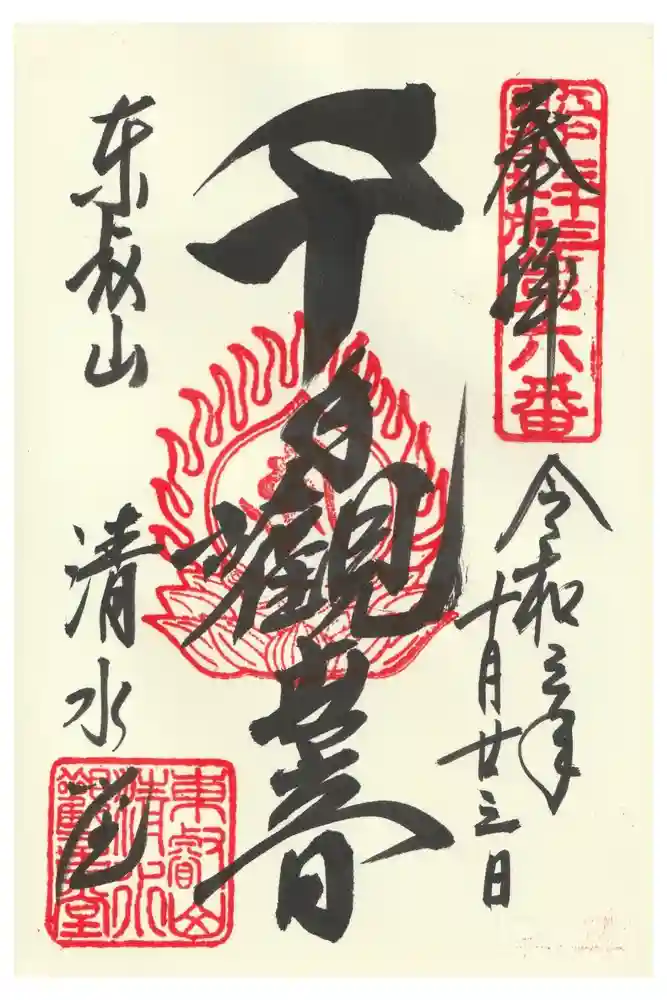 奉拝
第六番
令和三年
十月廿三日
千手觀世音
東叡山
清水堂
東叡山
清水
觀音堂